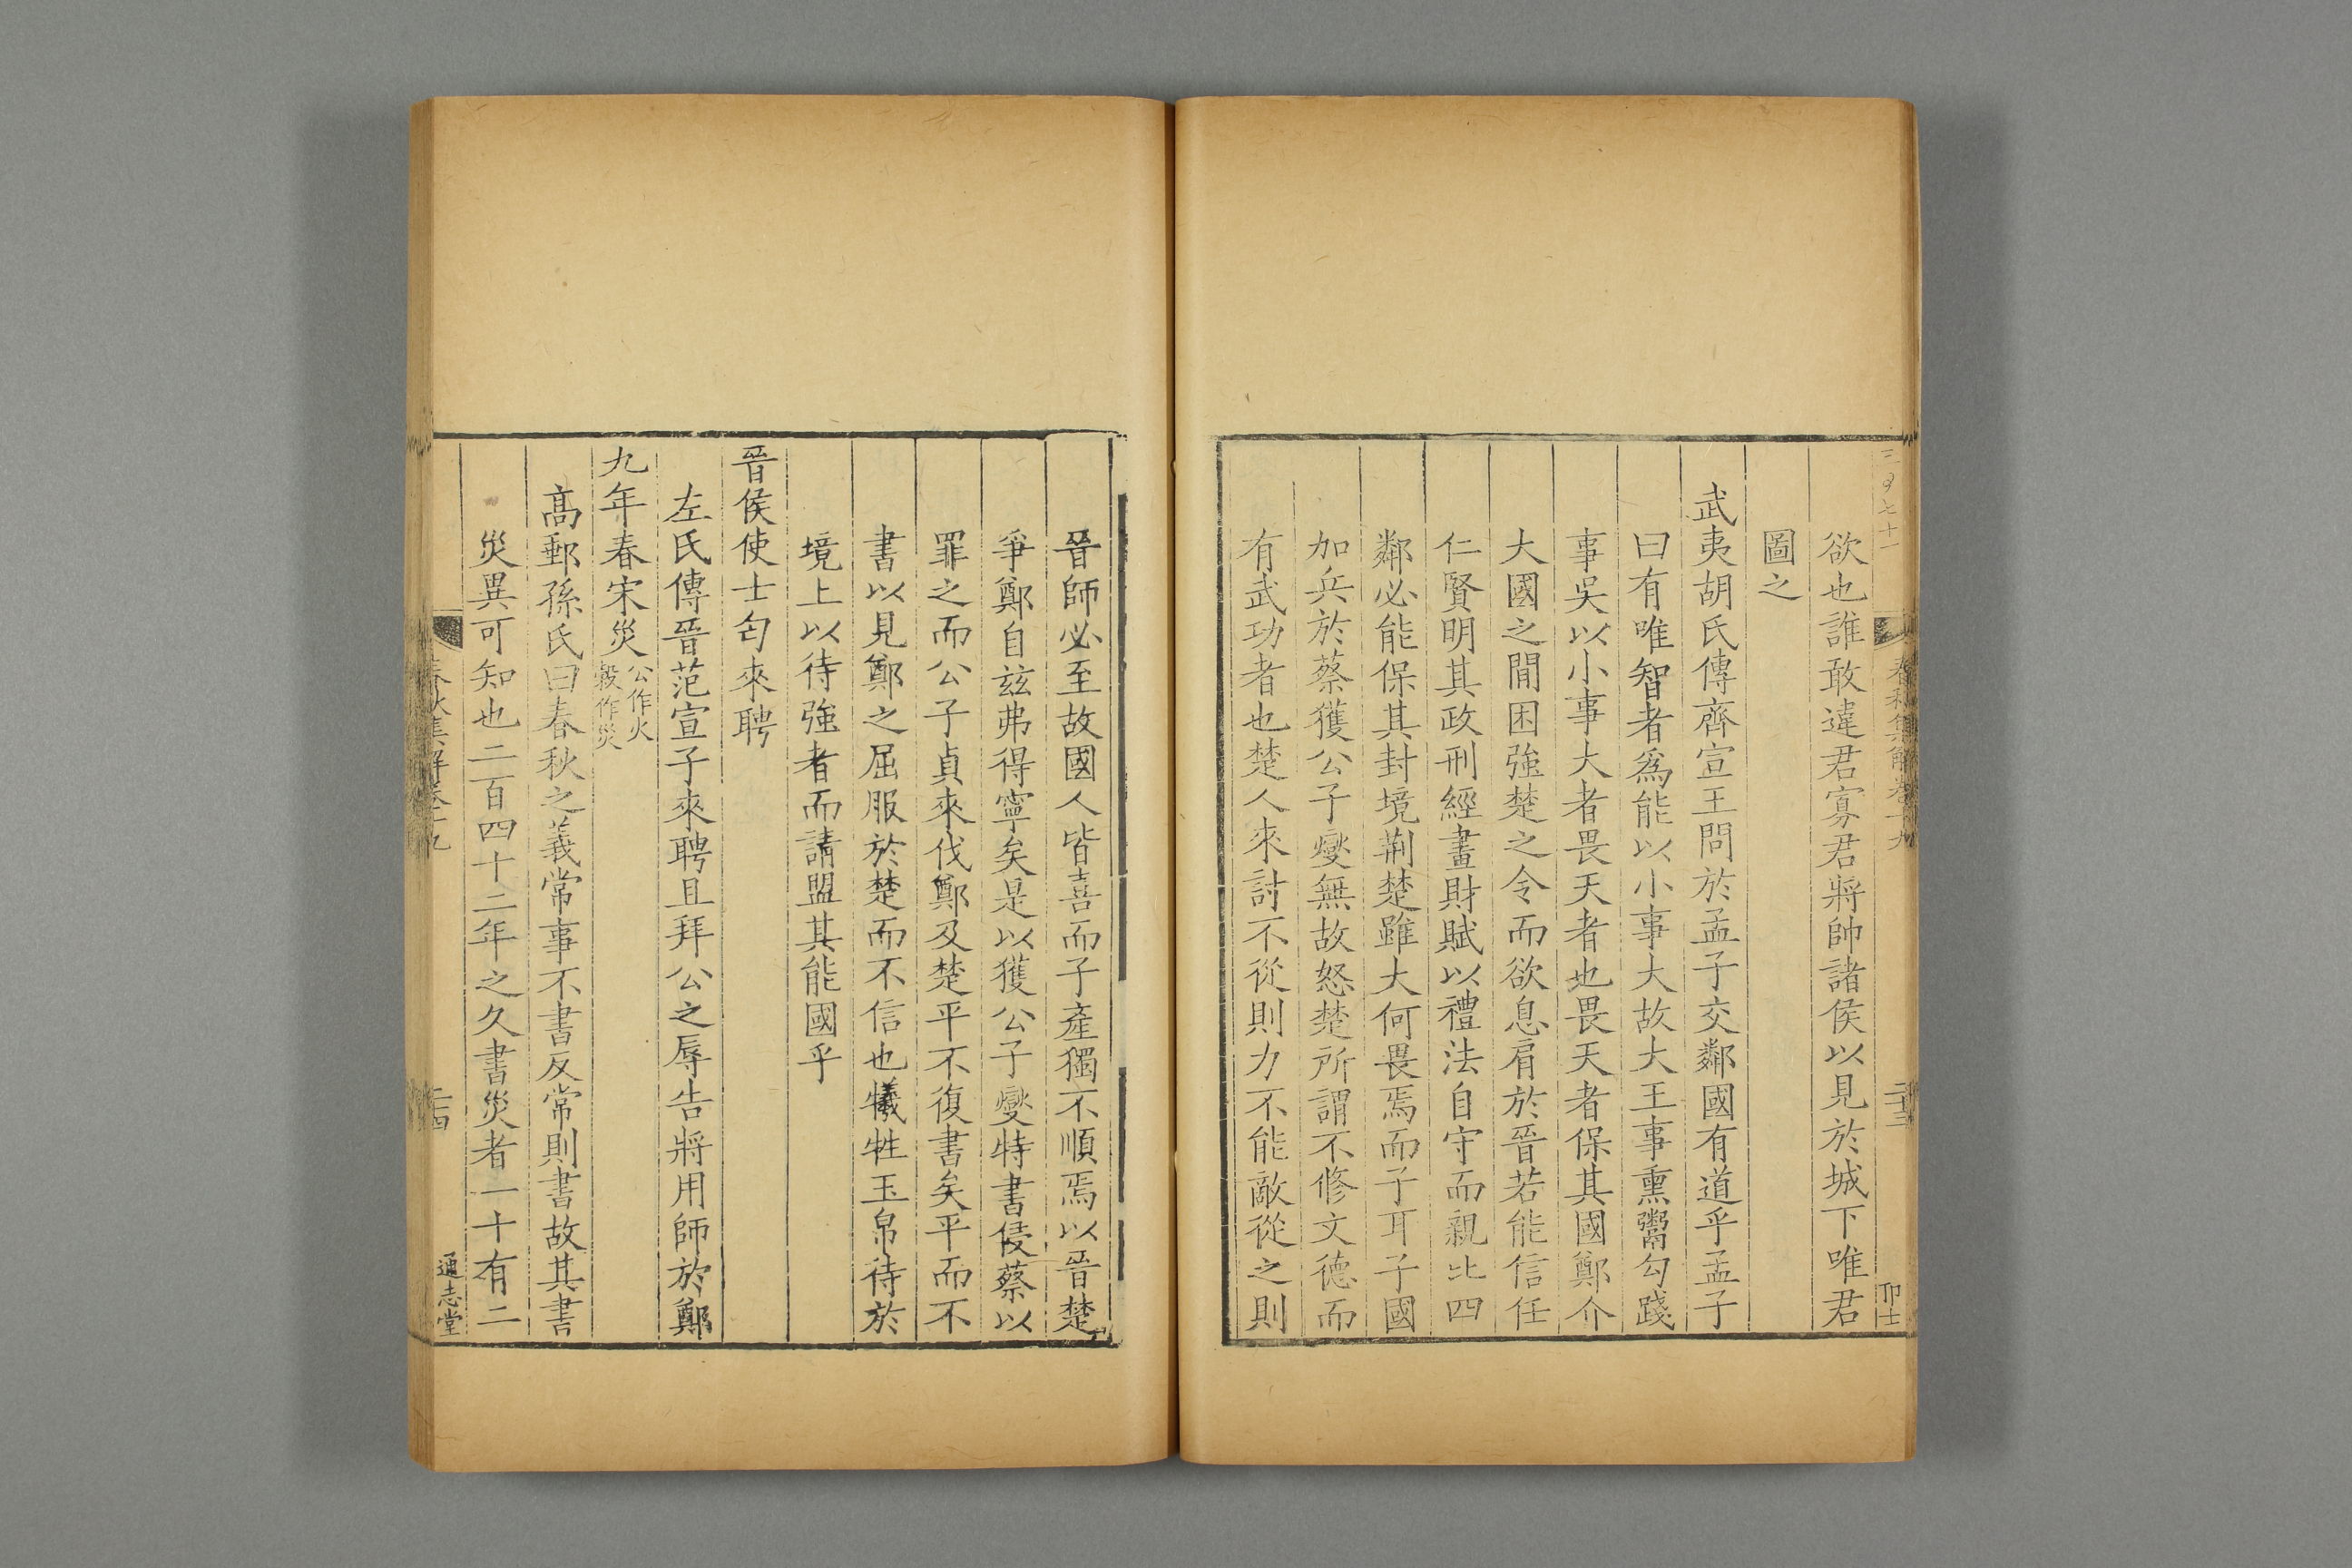 欲也誰敢違君寡君將帥諸侯以見於城下唯君
圖之
武夷胡氏傳齊宣王問於孟子交鄰國有道乎孟子
曰有唯智者爲能以小事大故大王事熏鬻勾踐
事吳以小事大者畏天者也畏天者保其國鄭介
大國之間困強楚之令而欲息肩於晉若能信任
仁賢明其政刑經畫財賦以禮法自守而親比四
鄰必能保其封境荊楚雖大何畏焉而子耳子國
加兵於蔡獲公子燮無故怒楚所謂不修文德而
有武功者也楚人來討不從則力不能敵從之則
晉師必至故國人皆喜而子產獨不順焉以晉楚
爭鄭自兹弗得寧矣是以獲公子燮特書侵蔡以
罪之而公子貞來伐鄭及楚平不復書矣平而不
書以見鄭之屈服於楚而不信也犧牲玉帛待於
境上以待強者而請盟其能國乎
晉侯使士匄來聘
左氏傳晉范宣子來聘且拜公之辱告將用師於鄭
九年春宋災公作火
榖作災
高郵孫氏曰春秋之義常事不書反常則書故其書
災異可知也二百四十二年之久書災者一十有二
春秋集解卷十九
通志堂